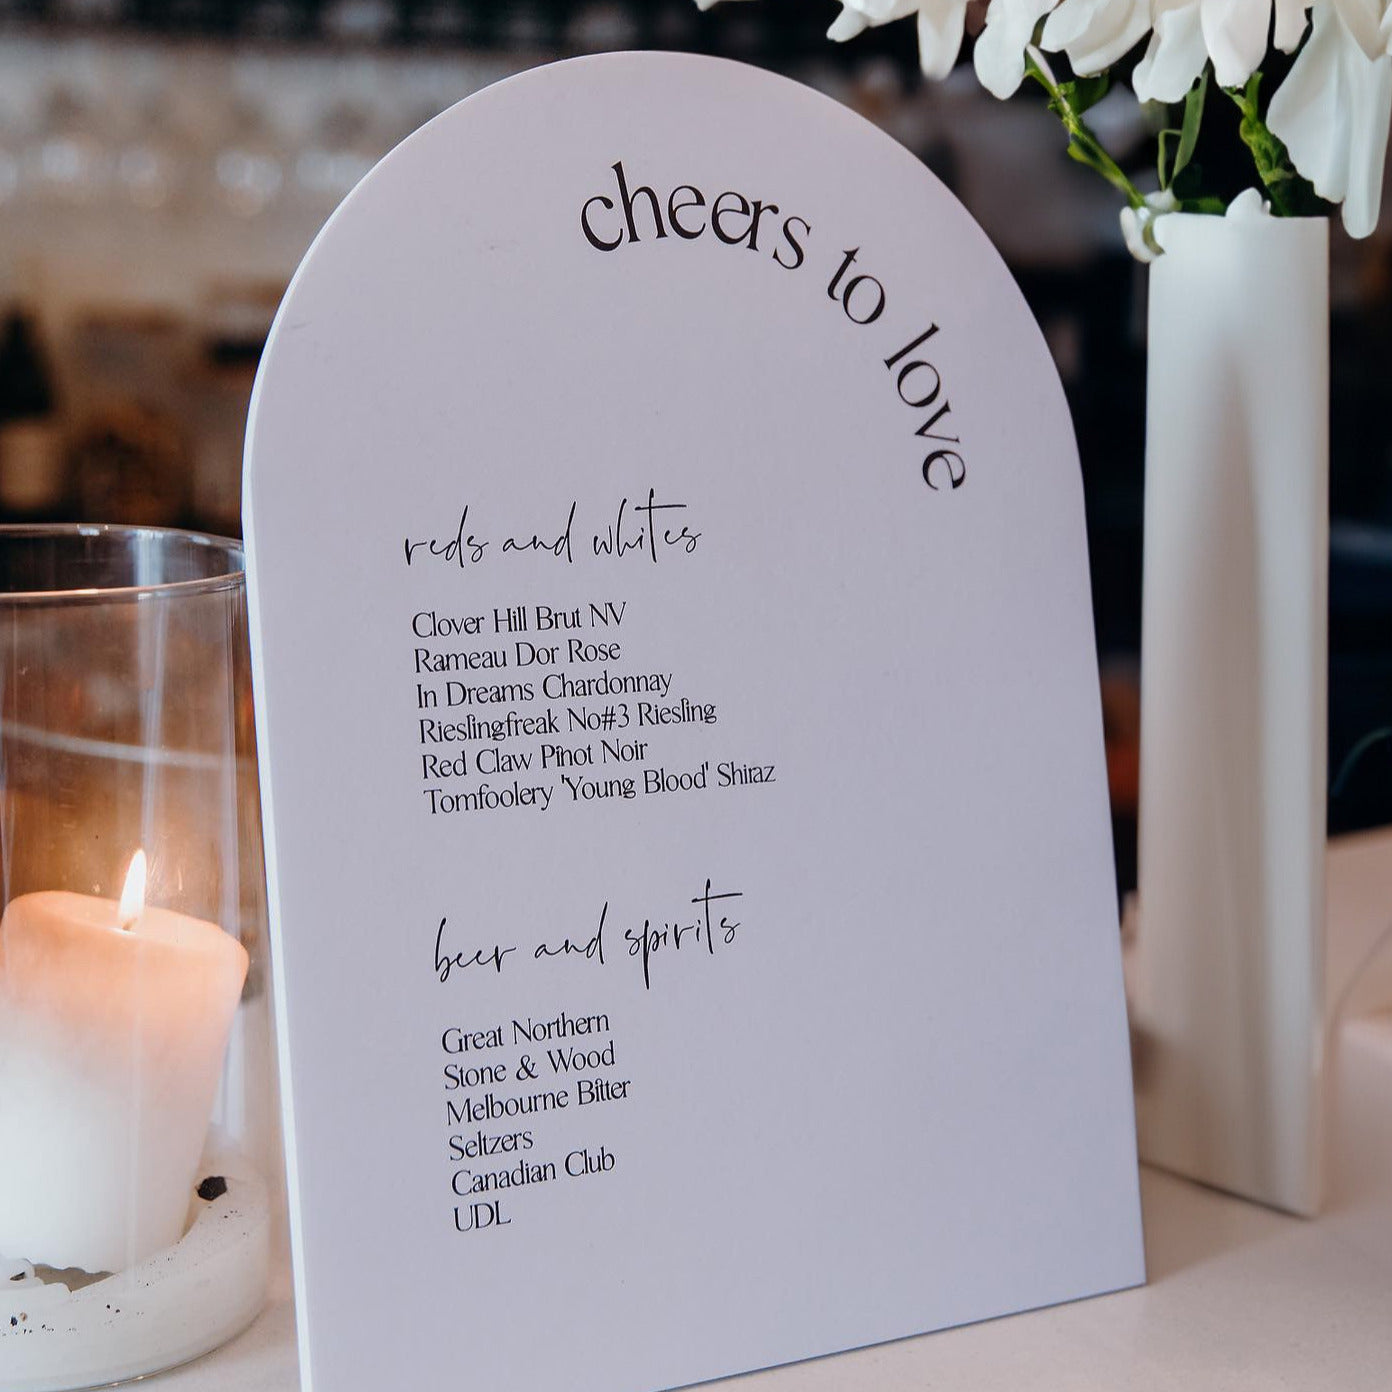 cheers to love
reds and whites
Clover Hill Brut NV
Rameau Dor Rose
In Dreams Chardonnay
Rieslingfreak No#3 Riesling
Red Claw Pinot Noir
Tomfoolery 'Young Blood' Shiraz
beer and spirits
Great Northern
Stone & Wood
Melbourne Bitter
Seltzers
Canadian Club
UDL